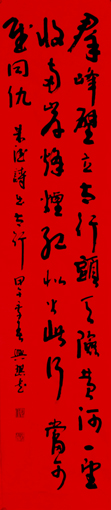 群峰壁立太行头天险黄河一望
收两岸烽烟红似火此行当可
慰同仇 朱德诗出太行 甲午年春